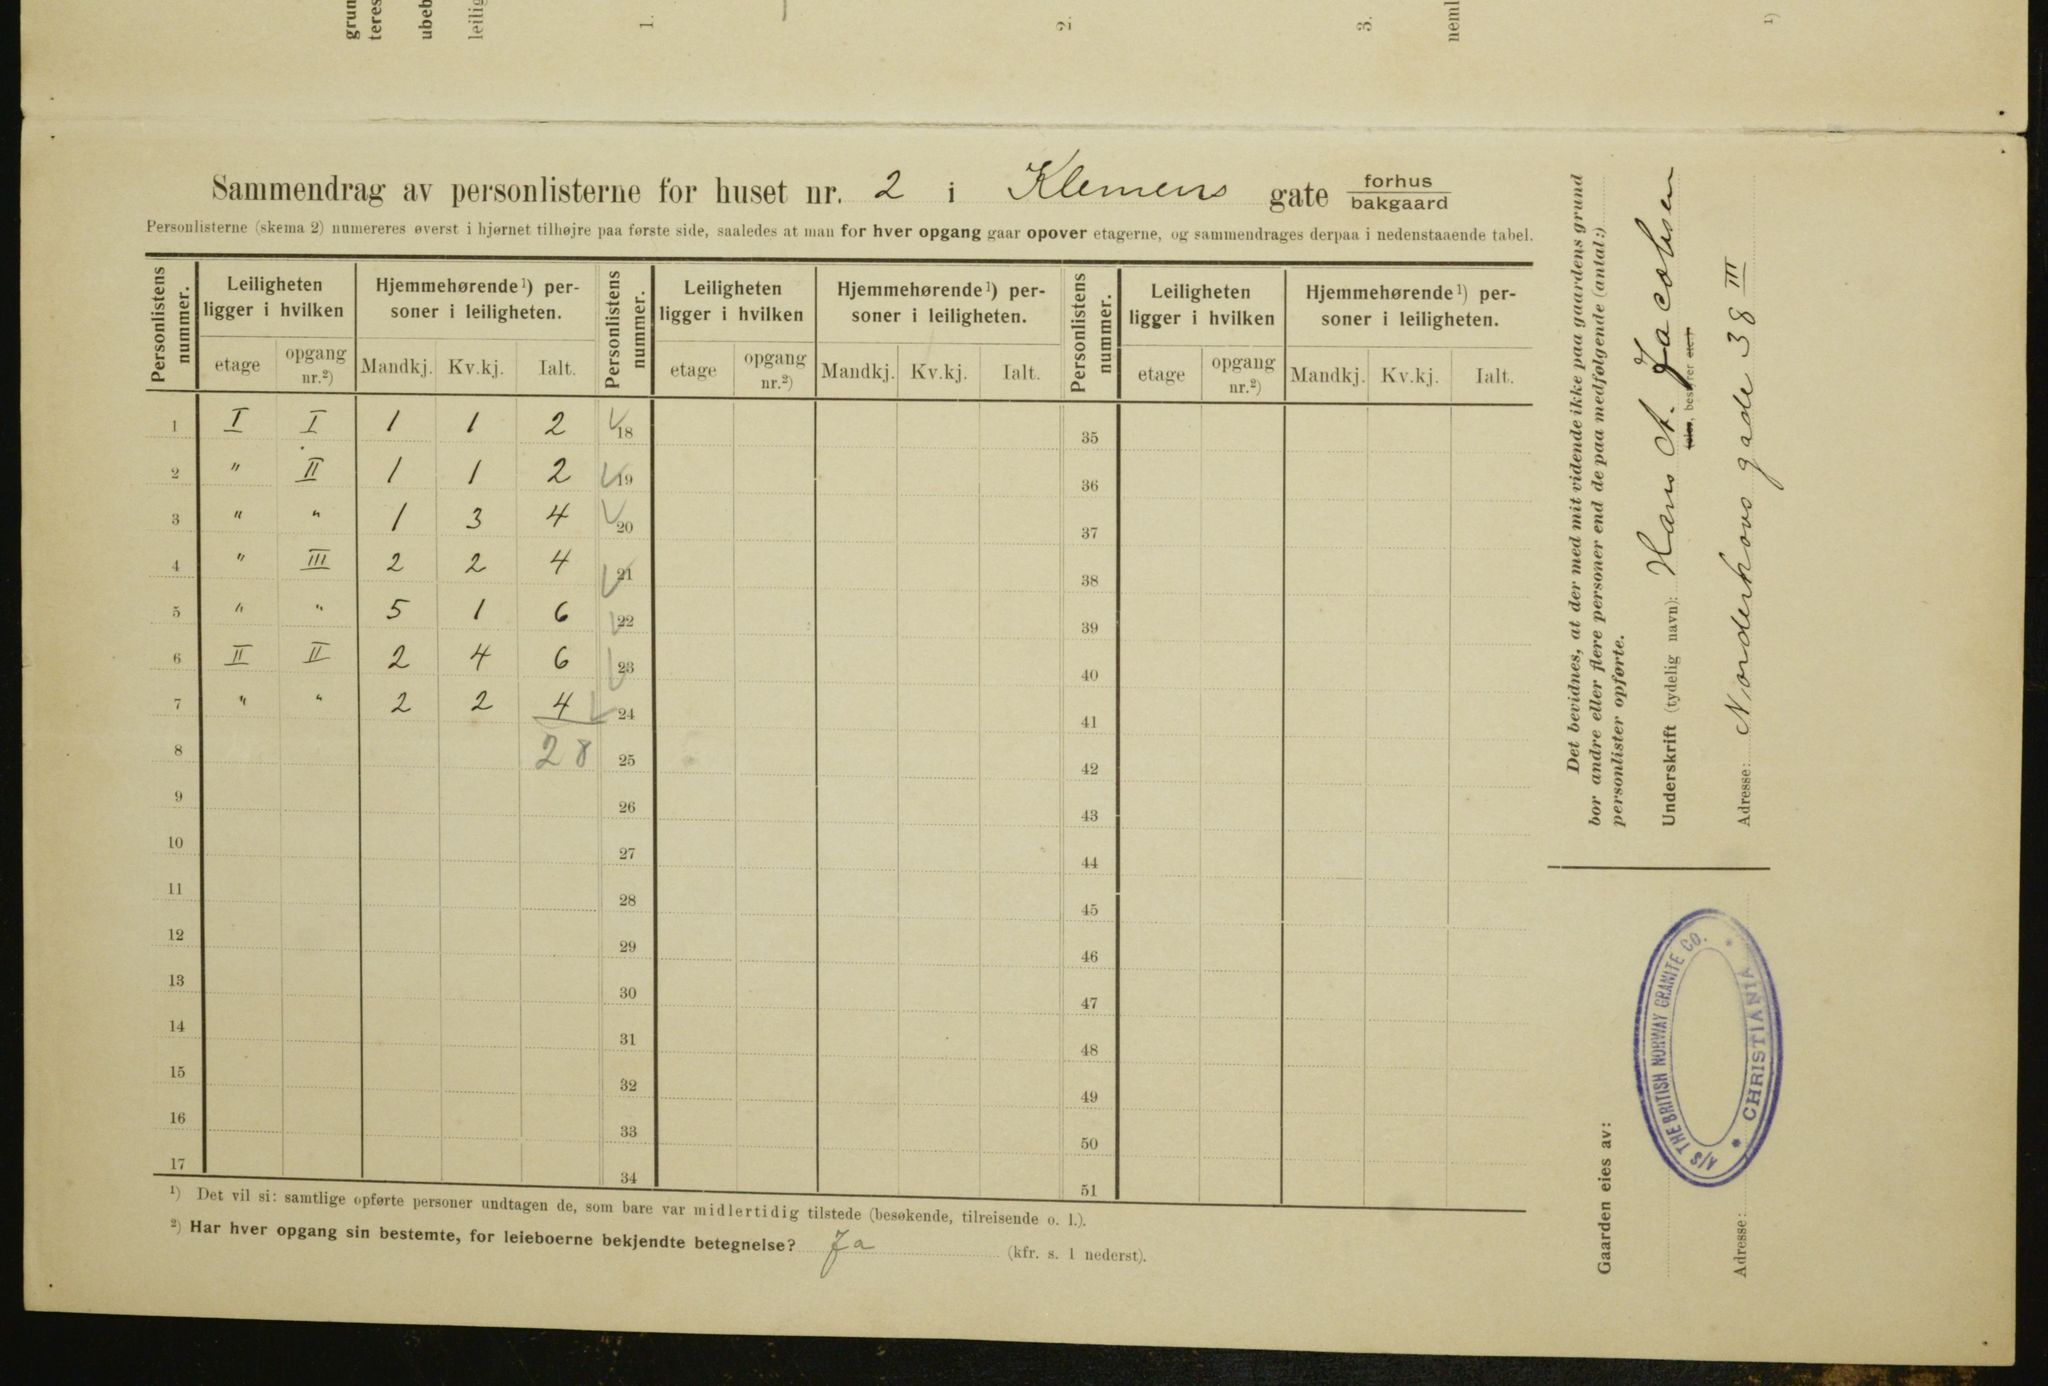 grun
teres
ubeb
leilig
1.
2.
3.
neml
1)
Sammendrag av personlisterne for huset nr. 2 i Klemens gate forhus
bakgaard
Personlisterne (skema 2) numereres øverst i hjørnet tilhøjre paa første side, saaledes at man for hver opgang gaar opover etagerne, og sammendrages derpaa i nedenstaaende tabel.
Personlistens nummer. Leiligheten ligger i hvilken Hjemmehørende¹) personer i leiligheten. Personlistens nummer. Leiligheten ligger i hvilken Hjemmehørende¹) personer i leiligheten. Personlistens nummer. Leiligheten ligger i hvilken Hjemmehørende¹) personer i leiligheten.
etage opgang nr.²) Mandkj. Kv.kj. Ialt. etage opgang nr.²) Mandkj. Kv.kj. Ialt. etage opgang nr.²) Mandkj. Kv.kj. Ialt.
1 I I 1 1 2 18 35
2 " II 1 1 2 19 36
3 " " 1 3 4 20 37
4 " III 2 2 4 21 38
5 " " 5 1 6 22 39
6 II II 2 4 6 23 40
7 " " 2 2 4 24 41
8 28 25 42
9 26 43
10 27 44
11 28 45
12 29 46
13 30 47
14 31 48
15 32 49
16 33 50
17 34 51
¹) Det vil si: samtlige opførte personer undtagen de, som bare var midlertidig tilstede (besøkende, tilreisende o. l.).
²) Har hver opgang sin bestemte, for leieboerne bekjendte betegnelse? Ja (kfr. s. 1 nederst).
Det bevidnes, at der med mit vidende ikke paa gaardens grund
bor andre eller flere personer end de paa medfølgende (antal:)
personlister opførte.
Underskrift (tydelig navn): Hans A. Jacobsen
(eier, bestyrer etc.)
Adresse: Norderhovs gade 38 III
Gaarden eies av:
A/S THE BRITISH NORWAY GRANITE CO.
* CHRISTIANIA *
Adresse: